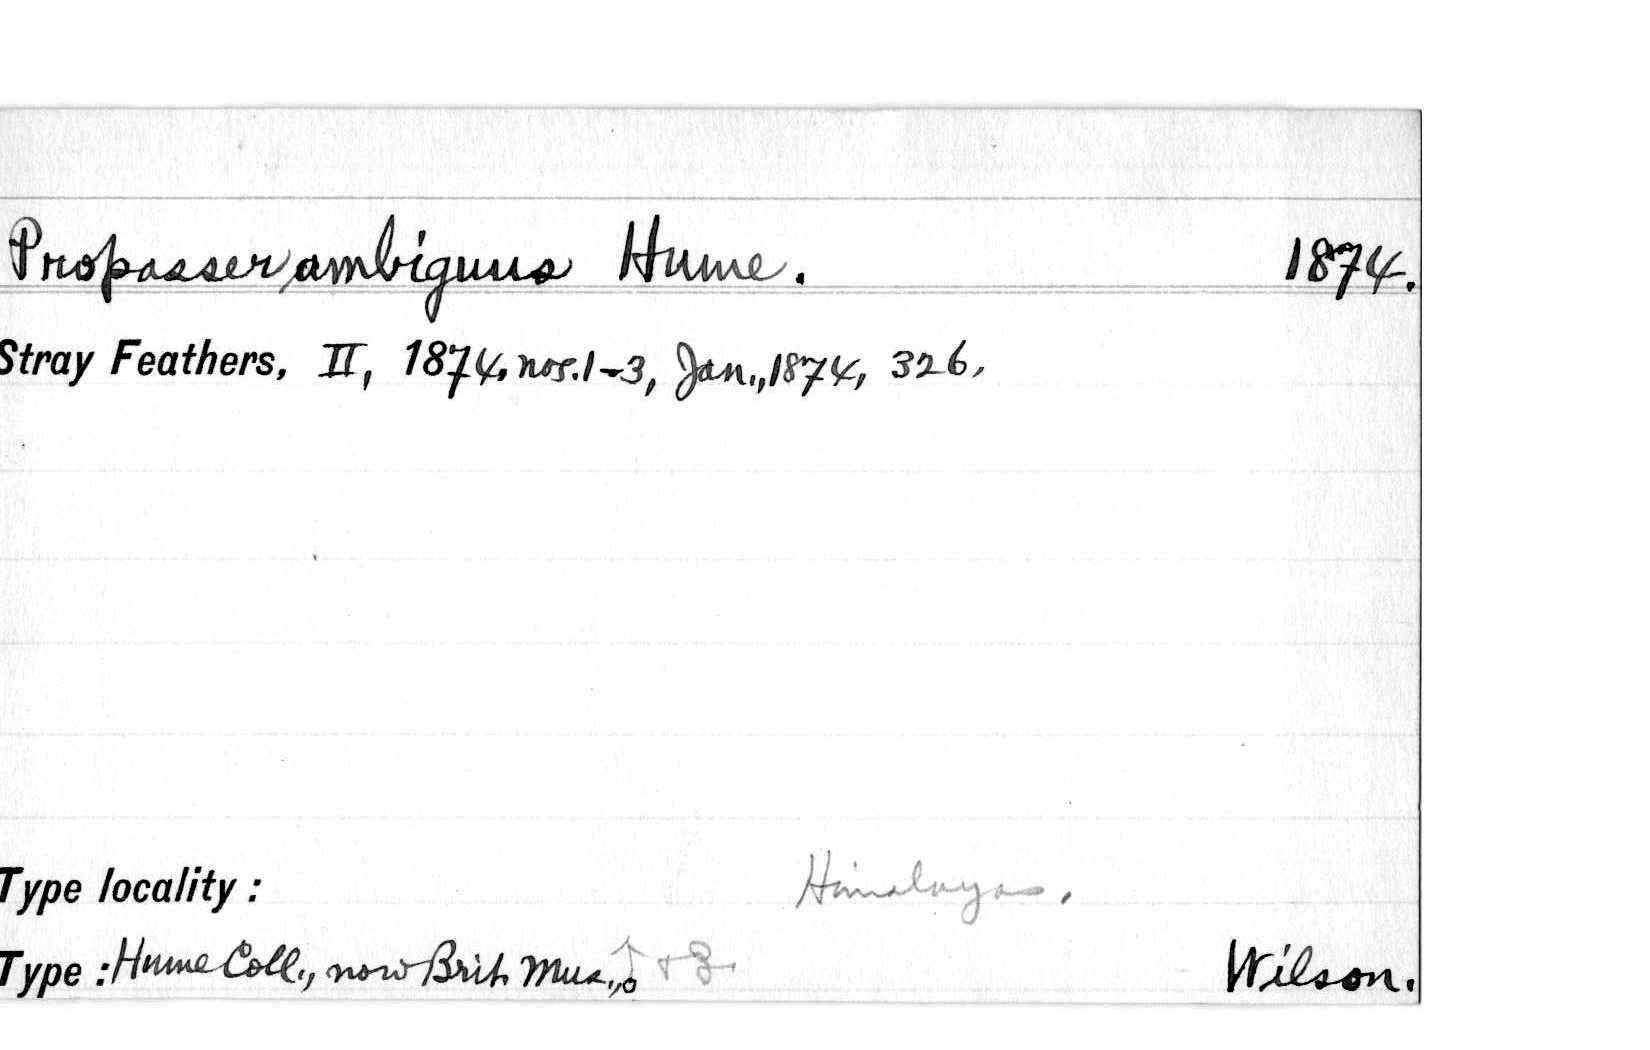 Propasser ambiguus Hume. 1874.
Stray Feathers, II, 1874, nos. 1-3, Jan., 1874, 326,
Type locality: Himalayas.
Type: Hume Coll., now Brit. Mus., ♂ + ♀. Wilson.